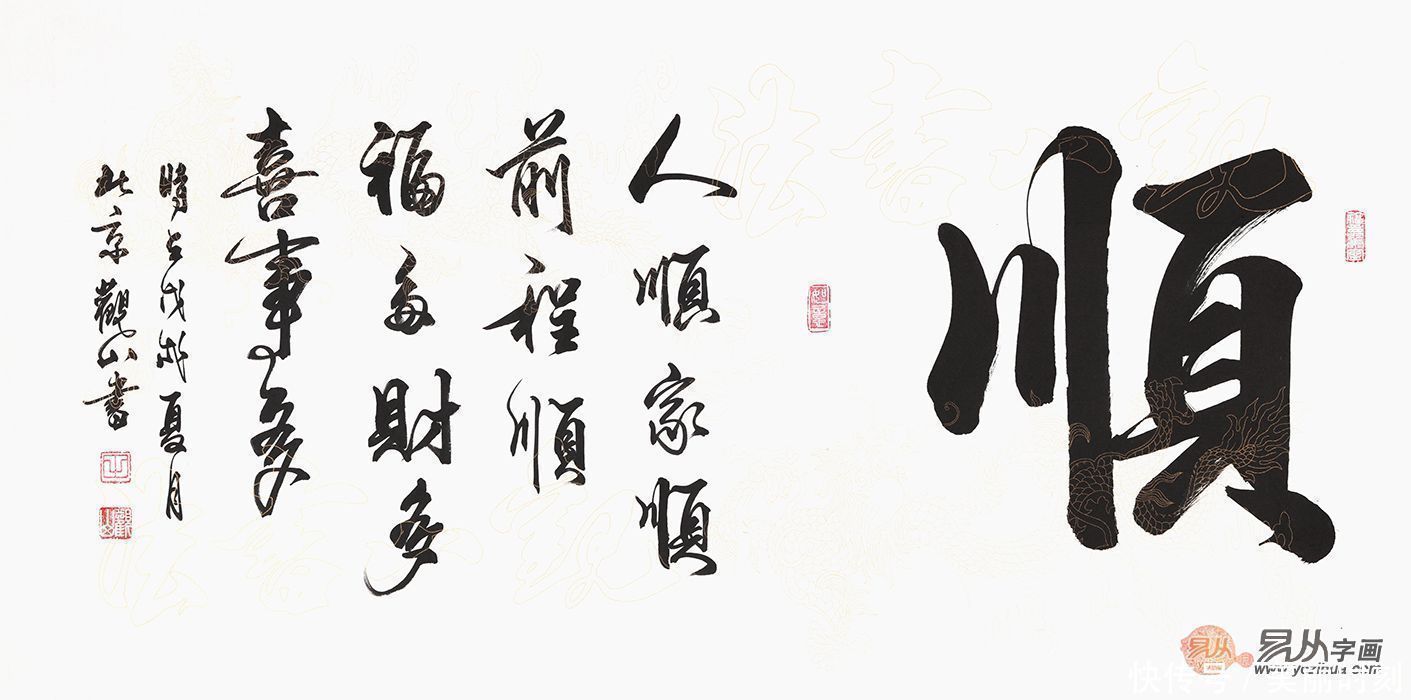 順
人順家順
前程順
福多財多
喜事多
時在戊戌夏月
北京觀山書
易从字画
www.yczihua.com
快传号 / 美丽时刻